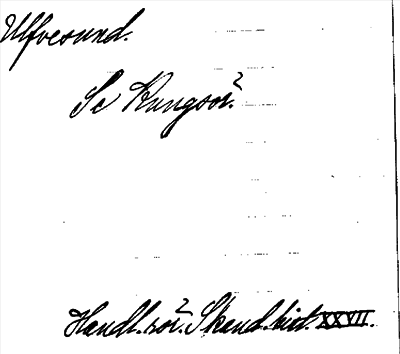 Ulfvesund.
Se Kungsör.
Handl. rör. Skand. hist. XXVII.